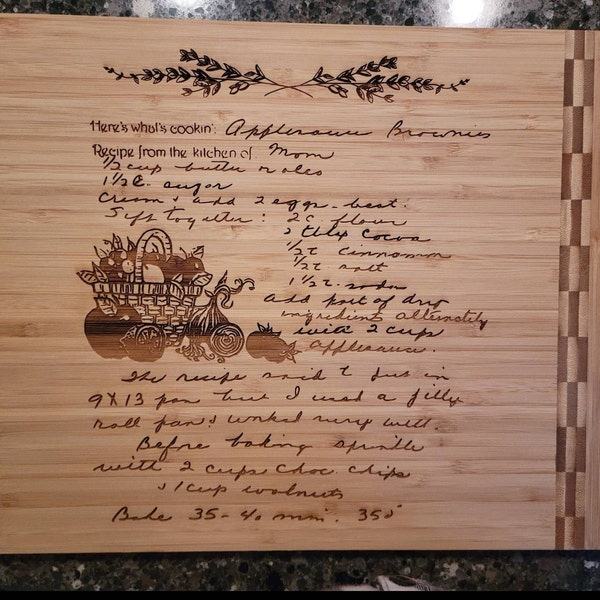 Here's what's cookin': Applesauce Brownies
Recipe from the kitchen of Mom
1/2 cup butter or oleo
1 1/2 C. sugar
Cream & add 2 eggs - beat.
Sift together: 2 C. flour
2 tblsp cocoa
1/2 t cinnamon
1/2 t salt
1 1/2 t. soda
Add part of dry
ingredients alternately
with 2 cups
applesauce.
The recipe said to put in
9 X 13 pan but I used a jelly
roll pan & worked very well.
Before baking sprinkle
with 2 cups choc. chips
& 1 cup walnuts
Bake 35-40 min. 350°